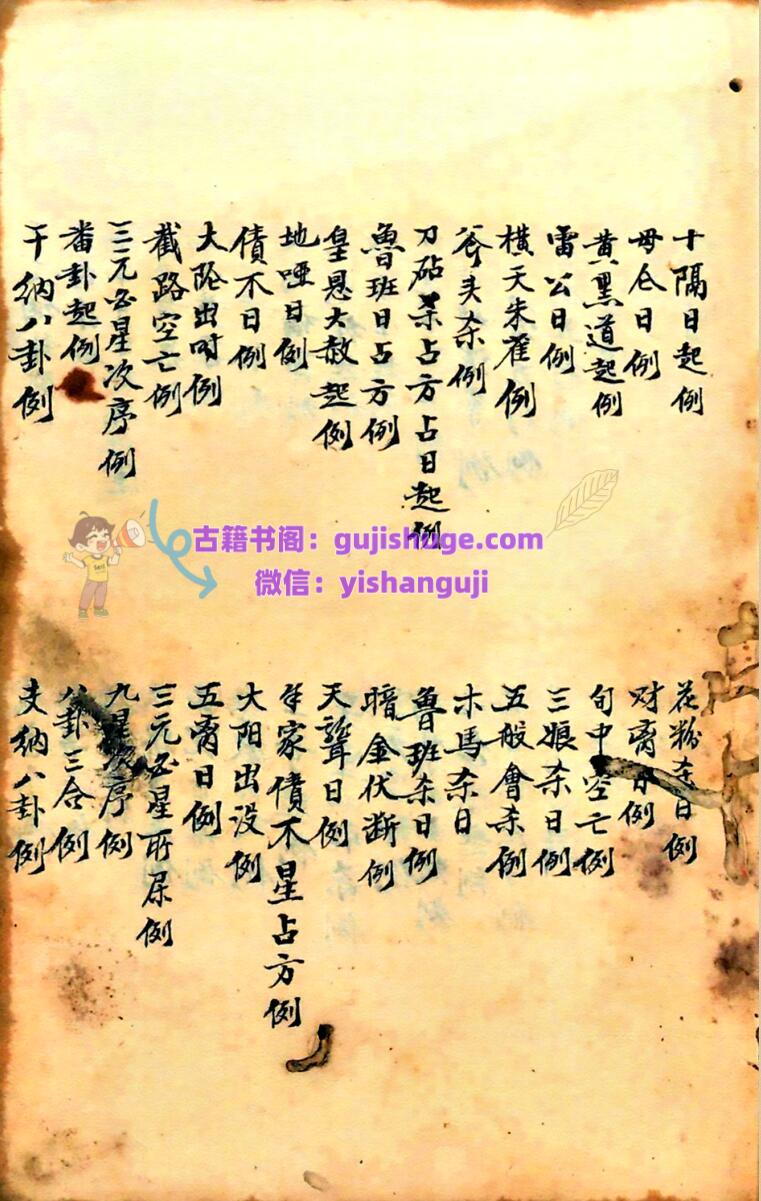 十隔日起例
毋仓日例
黄黑道起例
雷公日例
橫天朱雀例
斧头杀例
刀砧杀占方占日起例
魯班日占方例
皇恩大赦起例
地哑日例
債不日例
大陀出时例
截路空亡例
三元白星次序例
番卦起例
干纳八卦例
古籍书阁：gujishuge.com
微信：yishanguji
花粉杀日例
对斎日例
旬中空亡例
三娘杀日例
五般會杀例
木馬杀日
魯班杀日例
暗金伏断例
天聾日例
年家債不星占方例
大阳出没例
五斎日例
三元白星所屎例
九星次序例
八卦三合例
支纳八卦例